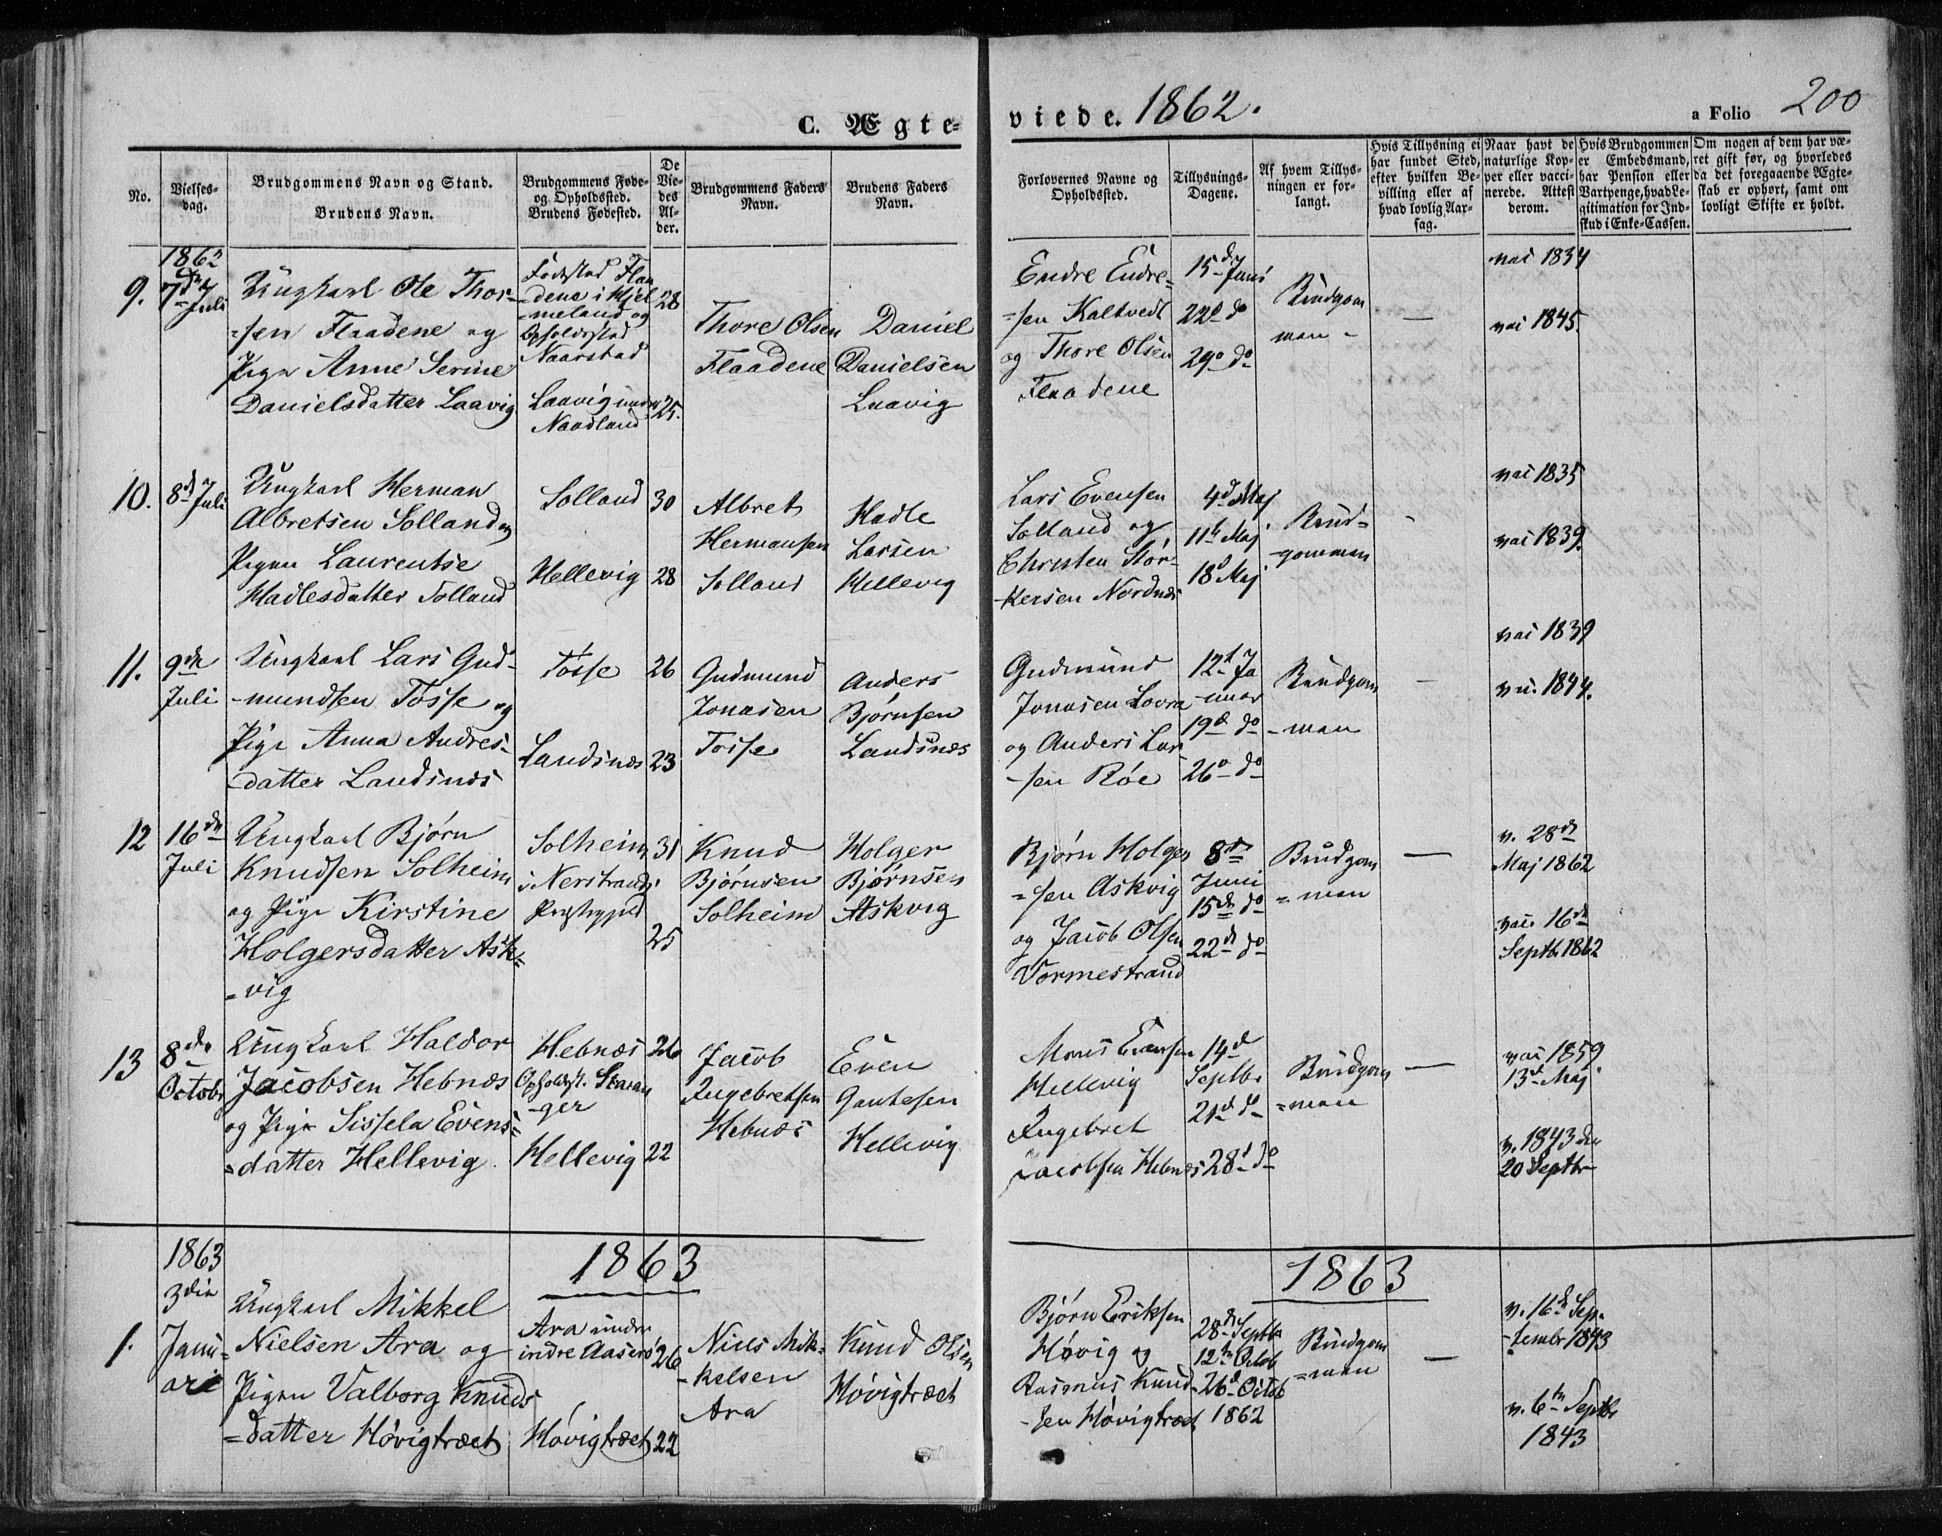 C. Ægte-
viede. 1862.
a Folio 200
No.
Vielses-
dag.
Brudgommens Navn og Stand.
Brudens Navn.
Brudgommens Føde-
og Opholdssted.
Brudens Fødested.
De
Vie-
des
Al-
der.
Brudgommens Faders
Navn.
Brudens Faders
Navn.
Forlovernes Navne og
Opholdssted.
Tillysnings-
Dagene.
Af hvem Tillys-
ningen er for-
langt.
Hvis Tillysning ei
har fundet Sted,
efter hvilken Be-
villing eller af
hvad lovlig Aar-
sag.
Naar havt de
naturlige Kop-
per eller vacci-
nerede. Attest
derom.
Hvis Brudgommen
er Embedsmand,
har Pension eller
Vartpenge, hvad Le-
gitimation for Ind-
skud i Enke-Cassen.
Om nogen af dem har væ-
ret gift før, og hvorledes
da det foregaaende Ægte-
skab er ophørt, samt om
lovligt Skifte er holdt.
1862
9.
7de Juli
Ungkarl Ole Thor-
=sen Flaadene og
Pige Anne Serine
Danielsdatter Laavig
Fødested Flaa
dene i Hjel
=meland og
Opholdssted
Naarstad
Laavig under
Naadland
28
25.
Thore Olsen
Flaadene
Daniel
Danielsen
Laavig
Endre Endre=
=sen Kaltvedt
og Thore Olsen
Flaadene
15d Juni
22d do
29d do
Brudgom
men -
—
vac 1834
vac 1845.
10.
8d Juli
Ungkarl Herman
Albretsen Solland og
Pigen Laurentse
Hadlesdatter Solland
Solland
Hellevig
30
28
Albret
Hermansen
Solland
Hadle
Larsen
Hellevig
Lars Evensen
Solland og
Christen Stor-
-kersen Nordnes
4d Maj
11te Maj
18d Maj
Brud=
-gommen
-
vac 1835
vac 1839.
11.
9de
Juli
Ungkarl Lars Gud-
-mundsen Tøsse og
Pige Anna Andres-
datter Landsnes
Tøsse
Landsnes
26
23
Gudmund
Jonasen
Tosse
Anders
Bjørnsen
Landsnes
Gudmund
Jonasen Lovra
og Anders Lar
-sen Røe
12t Ja
-nuar
19d do
26d do
Brudgom
-men
—
vac 1839
va. 1844.
12
16de
Juli
Ungkarl Bjørn
Knudsen Solheim
og Pige Kirstine
Holgersdatter Ask=
=vig
Solheim
i Nerstrands
Præstegjeld
31
25
Knud
Bjørnsen
Solheim
Holger
Bjørnsen
Askvig
Bjørn Holger
=sen Askvig
og Jacob Olsen
Vormestrand
8de
Juni
15de do
22d do
Brudgom
=men
—
v. 28de
Maj 1862
vac. 16de
Septb. 1862
13
8de
Octobr
Ungkarl Haldor
Jacobsen Hebnes
og Pige Sissela Evens=
=datter Hellevig
Hebnes
Opholdst. Stavan
-ger
Hellevig
26
22
Jacob
Ingebretsen
Hebnes
Even
Gautesen
Hellevig
Mons Evensen
Hellevig
Ingebret
Jacobsen Hebnes
14d
Septbr
21d do
28d do
Brudgom
=men
—
vac 1859
13de Maj
v. 1843 den
20 Septbr
1863
1863
1863
1.
3die
Janu=
ari
Ungkarl Mikkel
Nielsen Ara og
Pigen Valborg Knuds
=datter Høvigtræet
Ara under
indre Aaserø
Høvigtræet
26
22
Niels Mik-
-kelsen
Ara
Knud Olsen
Høvigtræet
Bjørn Eriksen
Høvig og
Rasmus Knud-
-sen Høvigtræet
28de Septbr
12te Octob
26d Octob
1862
Brudgom
=men
—
v. 16de Sep-
-tember 1843
v. 6te Septbr
1843